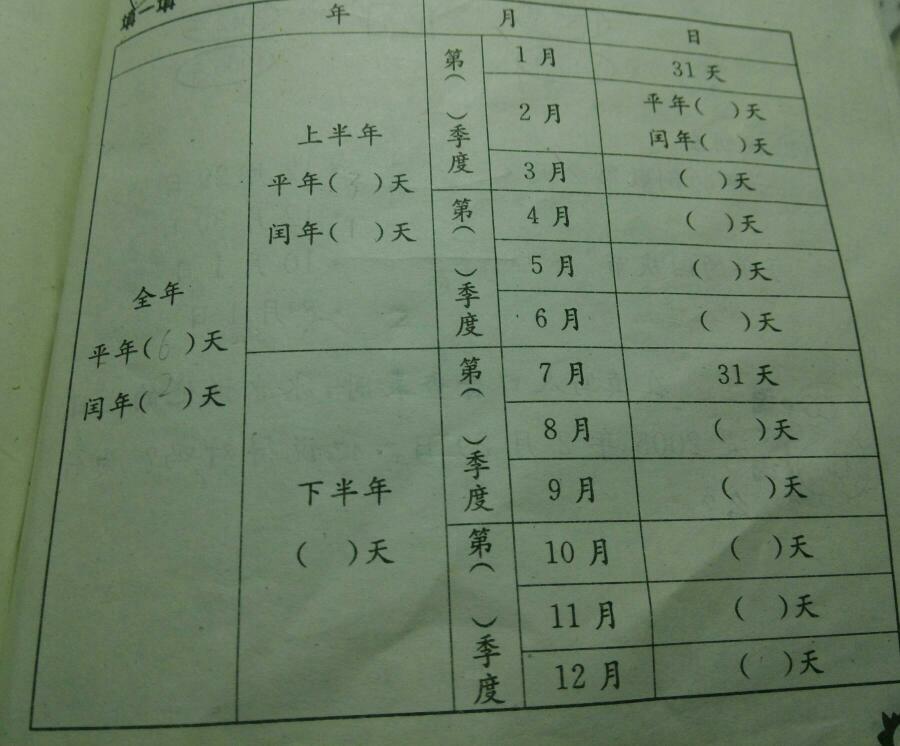 填一填
年 月 日
全年
平年(6)天
闰年( )天
上半年
平年( )天
闰年( )天
第( )季度
1月 31天
2月 平年( )天
闰年( )天
3月 ( )天
第( )季度
4月 ( )天
5月 ( )天
6月 ( )天
下半年
( )天
第( )季度
7月 31天
8月 ( )天
9月 ( )天
第( )季度
10月 ( )天
11月 ( )天
12月 ( )天